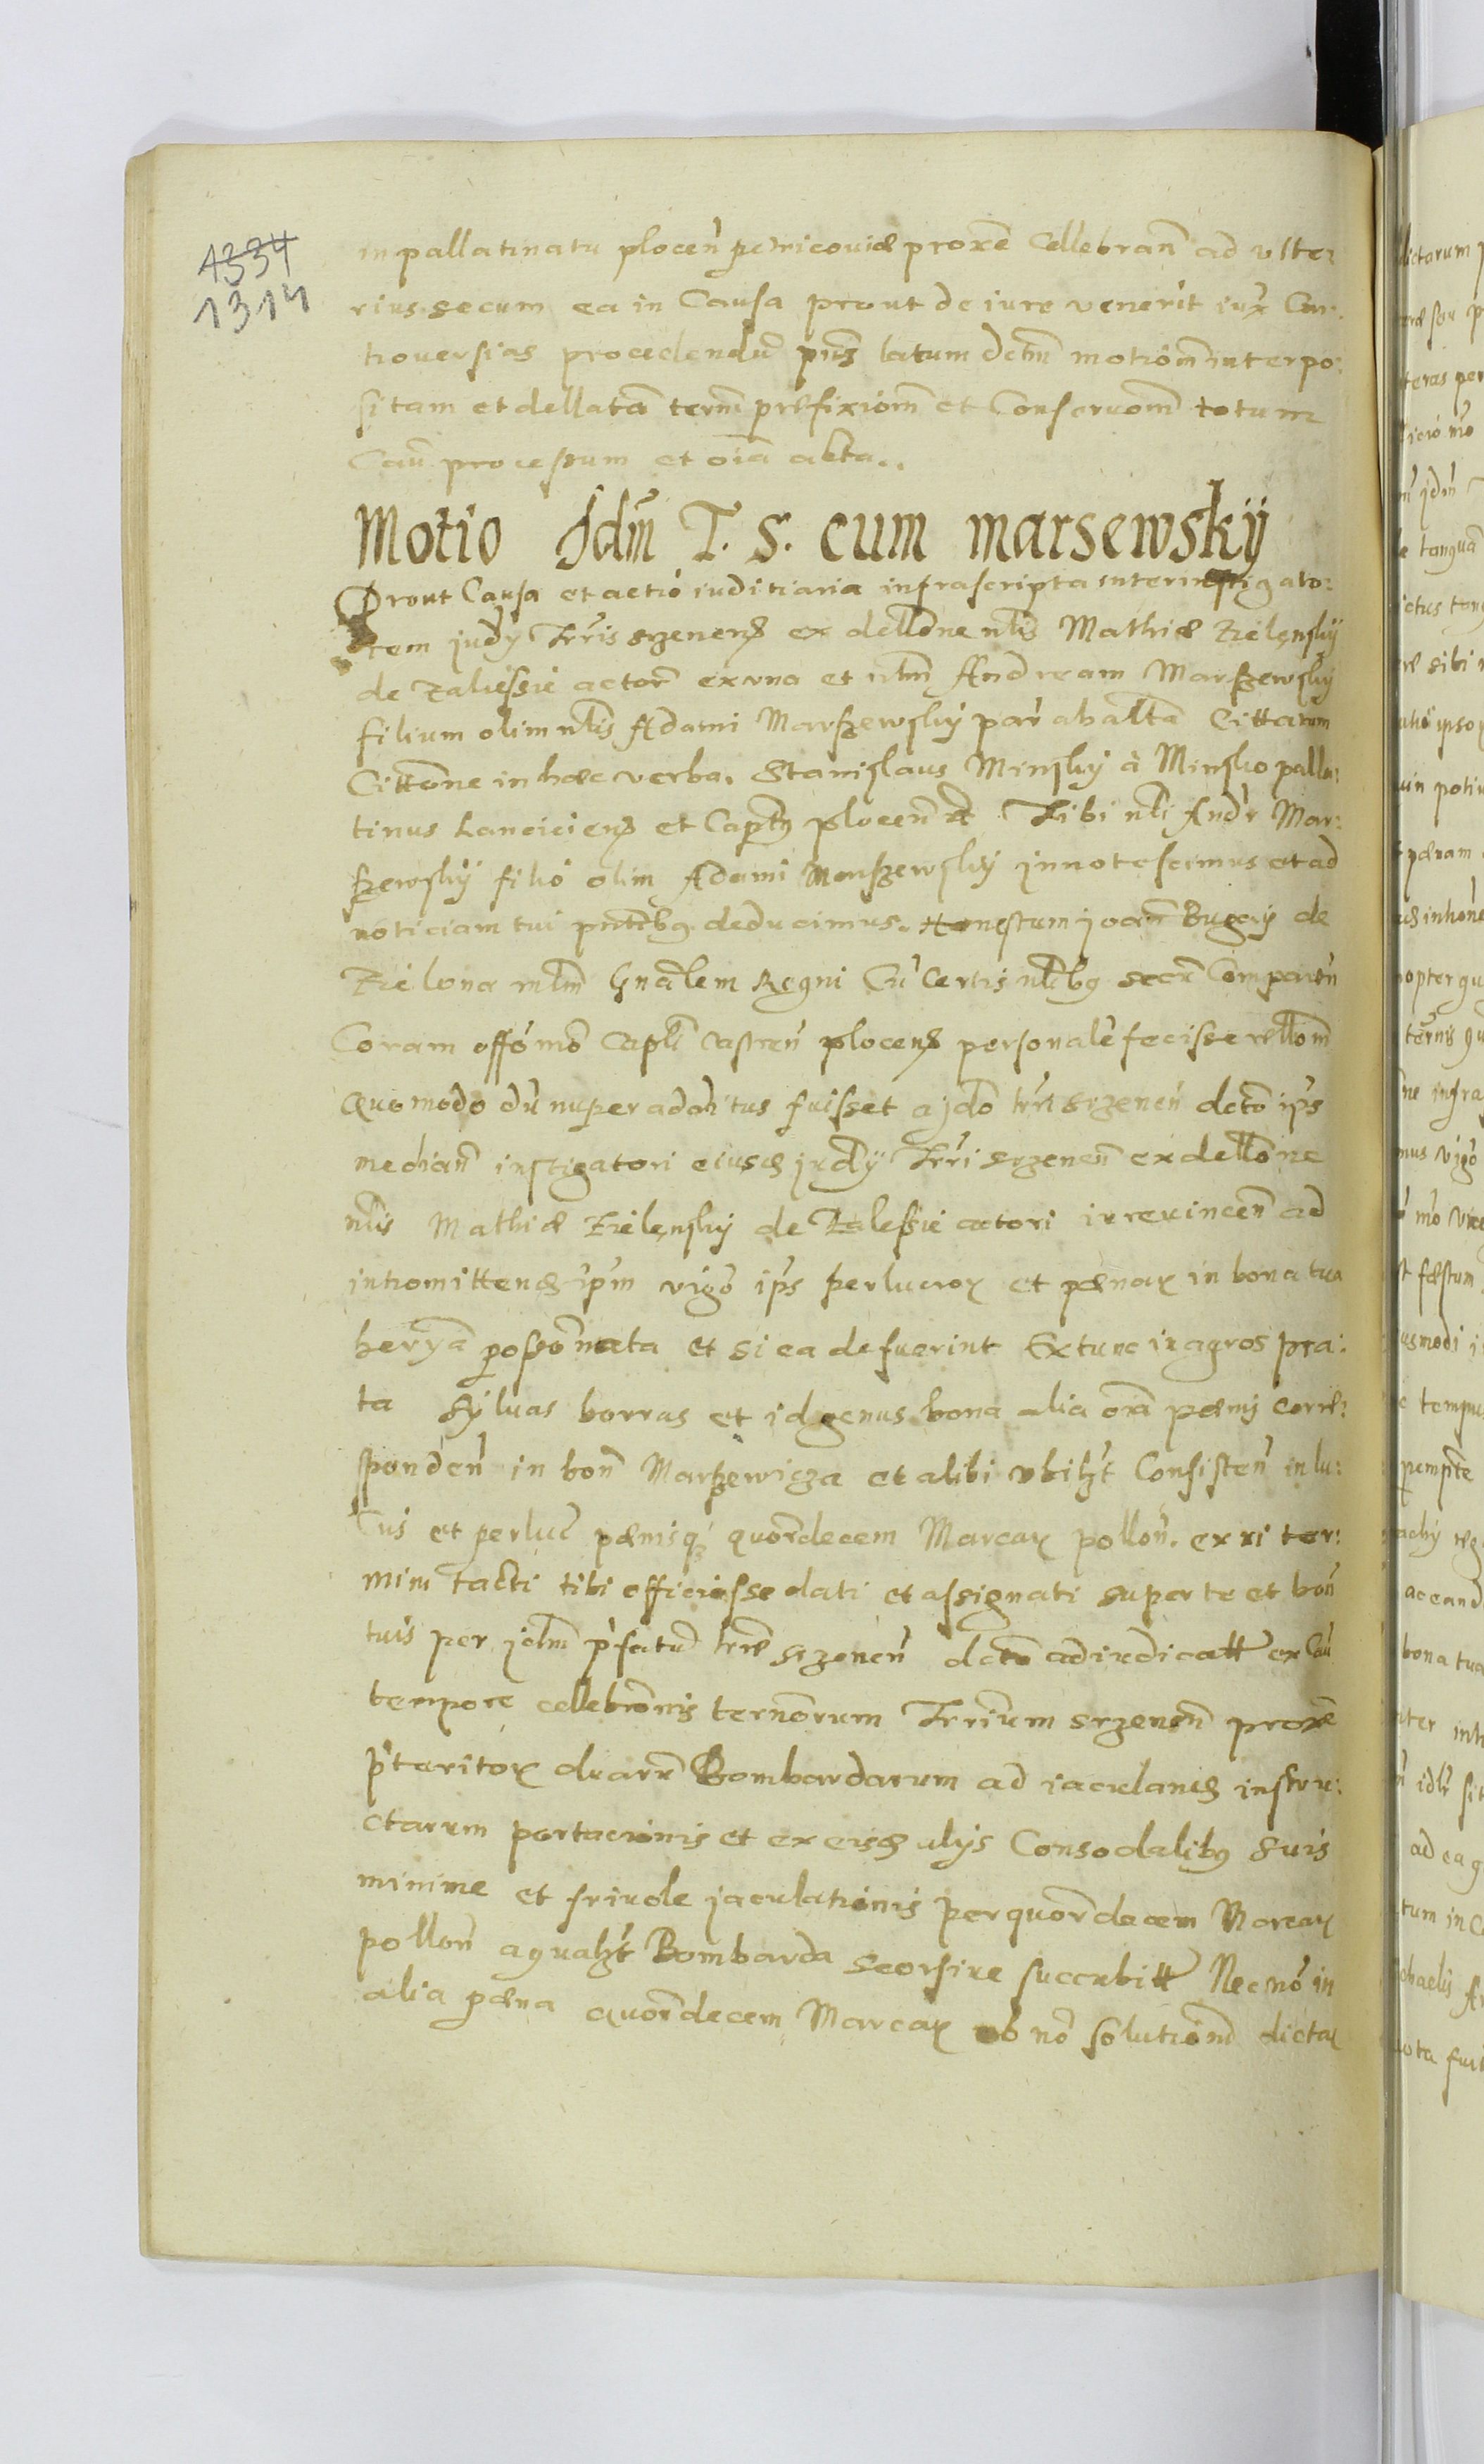 1334
1314
in pallatinatu plocen petricoviæ proxe Cellebran ad ulte:
rius secum ea in Causa prout de iure venerit iux Con:
troversias procedendu pns latum detm motiom interpo:
sitam et dellata term præfixiom et Conservom totum
Cau processum et oia akta..
Motio Idm T. S. cum marsewskij
Prout Causa et actio iuditiaria infrascripta inter instigato:
rem judy Trris srzenens ex dellone nlis Mathiæ Zielenskij
de Zaliessie actore ex una et nlm Andream Marszewskij
filium olim nlis Adami Marszewskij par ab alta Cittatum
Cittone in hæc verba. Stanislaus Minskij à Minsko palla:
tinus Lanciciens et Capts plocen et Tibi nli Andr Mar:
szewskij filio olim Adami Marszewskij innotescimus et ad
noticiam tui pntibg deducimus. Honestum joan Bugaij de
Zielona mlm Gnalem Regni Cu Certis nlibg secu Comparen
Coram offo mo Capli castren plocens personale fecisse rellom
Quomodo du nuper additus fuisset a jdo trri srzenen deto ips
median instigatori eiusd judy Trri srzenen ex dellone
nlis Mathiæ Zielenskij de Zalessie actori irrevincen ad
intromittend ipm vigo ips perlucror et pænar in bona tua
herya possonata et si ea defuerint Extunc in agros pra:
ta sylvas borras et id genus bona alia oia pænis corre:
sponden in bon Marszewicza et alibi ubiht Consisten in lu:
Cris et perluc pænisq quordecem Marcar pollon. ex vi ter:
mini tacti tibi officiose dati et assignati super te et bon
tuis per jdm pfatu trre srzenen deto adiudicatt ex Cau
tempore cellebronis ternorum Trrium srzenen proxe
pteritor duaru Bombardarum ad iaculand instru:
ctarum portacionis et ex eisd alijs Consodalibg suis
minime et frivole jaculationis per quordecem Marcar
pollon a qualht Bombarda seorsive succubitt Nec no in
alia pæna quordecem Marcar ob no solutiom dictar